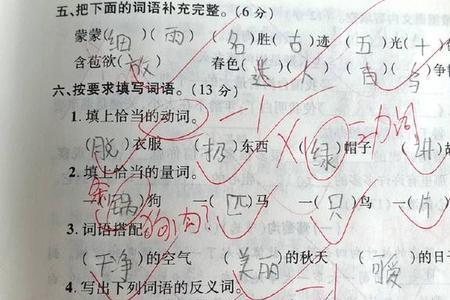 五、把下面的词语补充完整。(6分)
蒙蒙(细)(雨) (名)胜(古)迹 (五)光(十)
含苞欲(放) 春色(迷)(人) 百(鸟)争
六、按要求填写词语。(13分)
1.填上恰当的动词。
(脱)衣服 (扔)东西 (绿)帽子 动词
2.填上恰当的量词。
一(锅)狗 一(匹)马 一(只)鸟 一(片)
狗肉?
3.词语搭配
(干净)的空气 (美丽)的秋天 (暖)的日
4.写出下列词语的反义词。